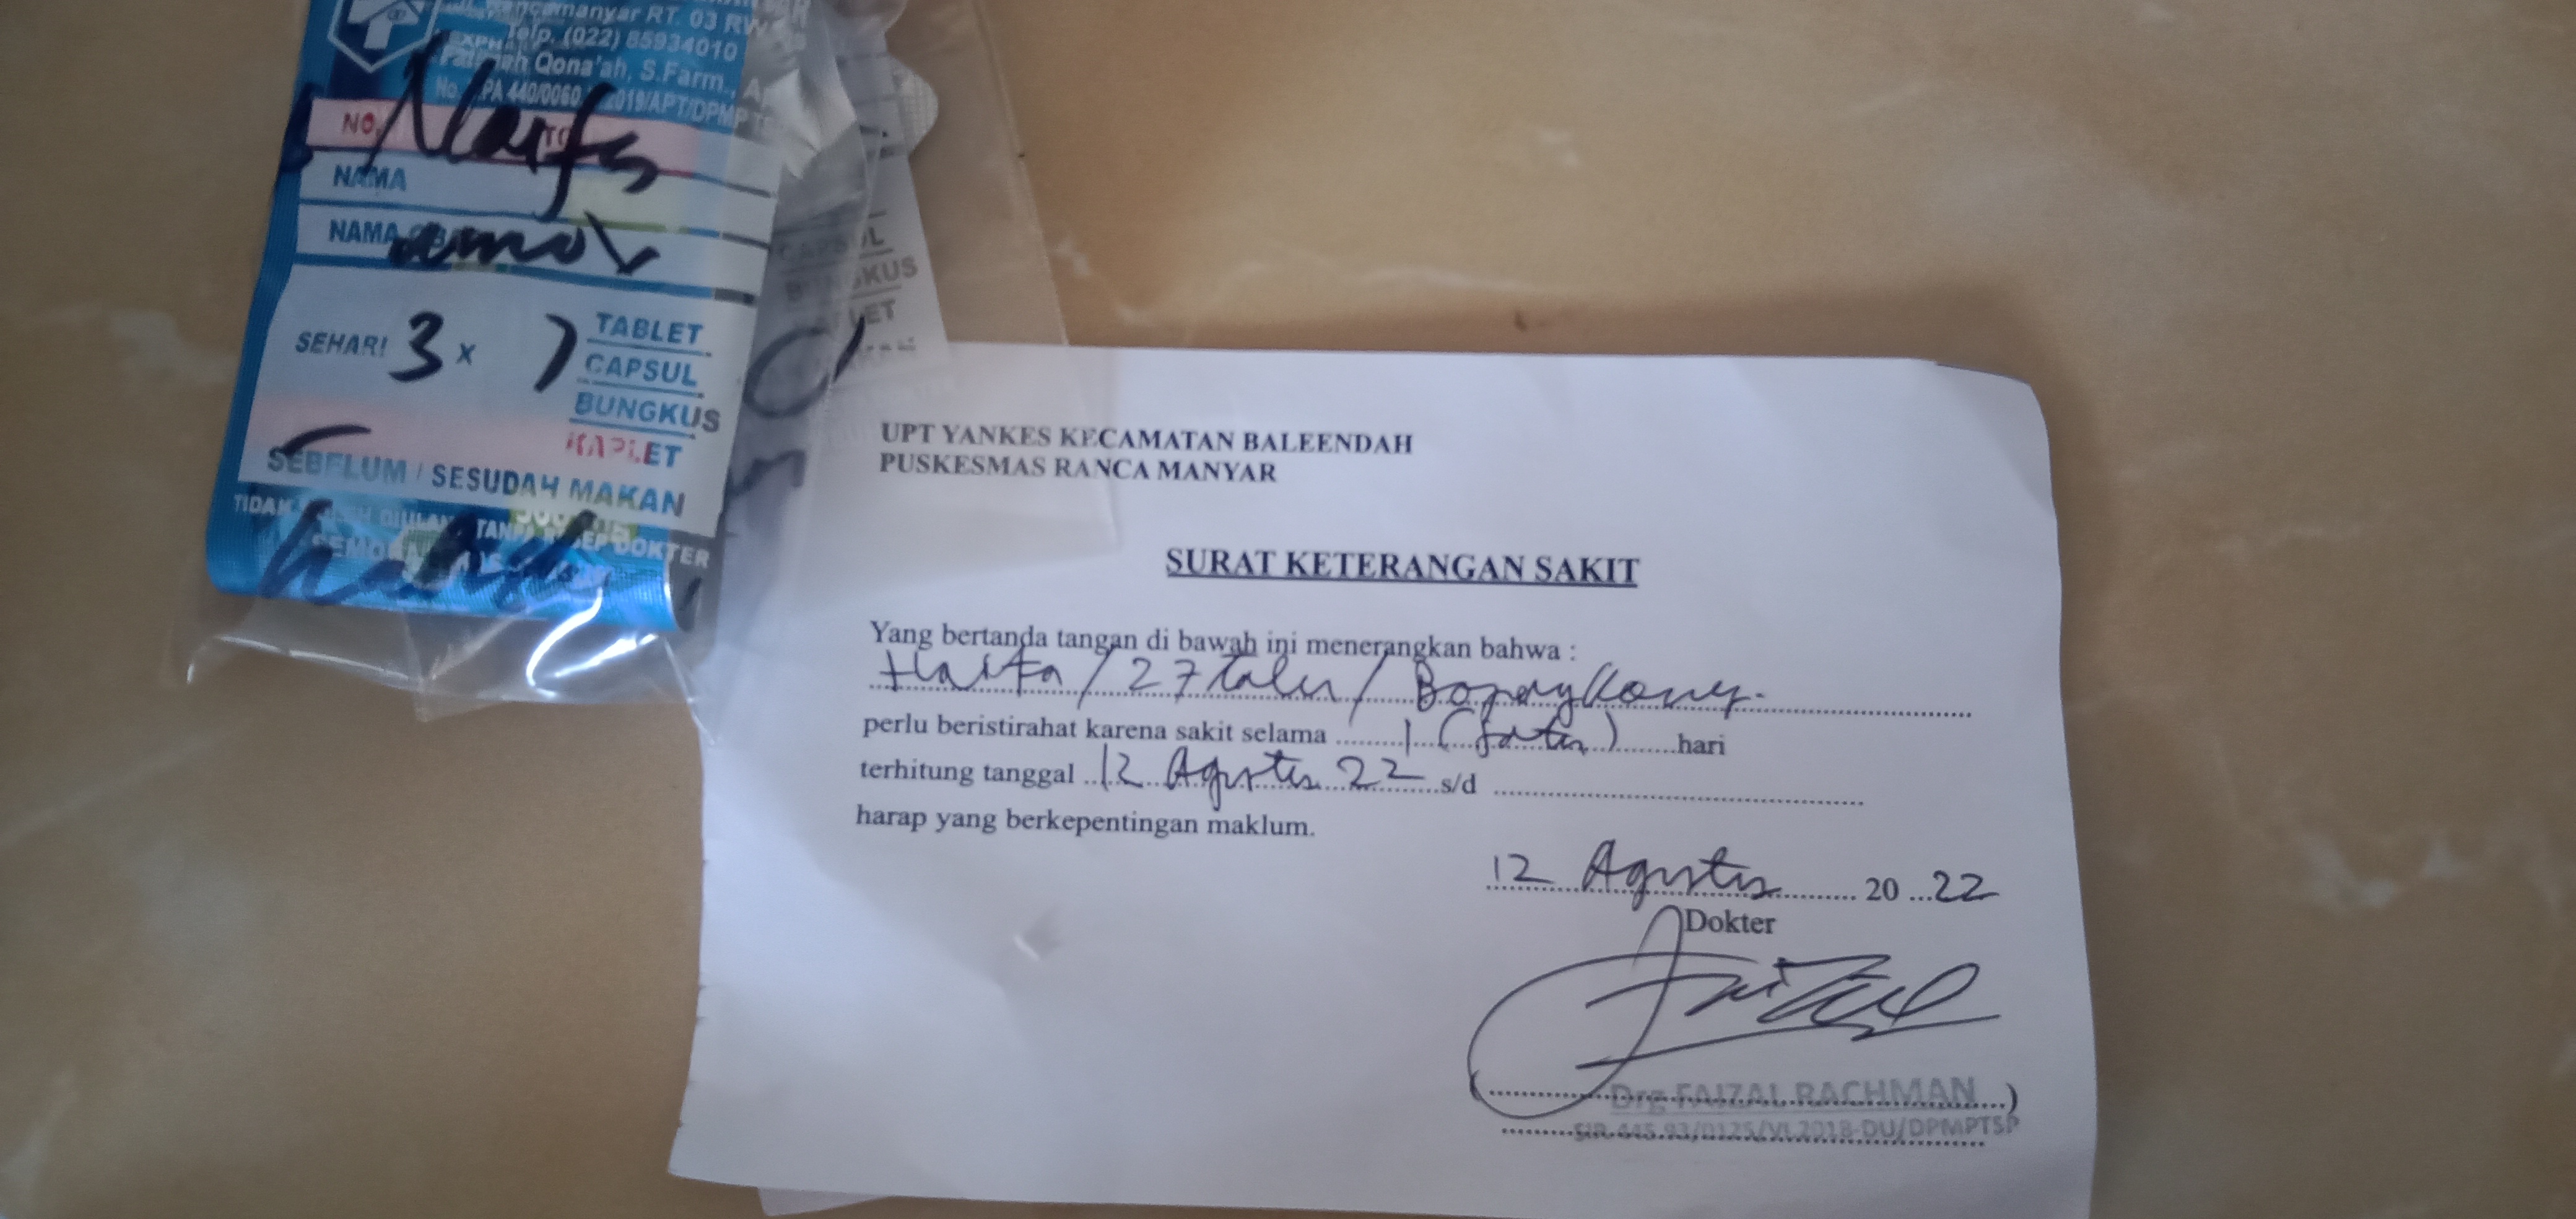 Rancamanyar RT. 03 RW
Telp. (022) 85934010
Qona'ah, S.Farm., A
440/0060 2019/APT/DPMPT
NO.
NAMA
NAMA
amox
SEHARI 3 x 1 TABLET
CAPSUL
BUNGKUS
KAPLET
SEBELUM / SESUDAH MAKAN
TIDAK TANPA RESEP DOKTER
CAPSUL
BUNGKUS
UPT YANKES KECAMATAN BALEENDAH
PUSKESMAS RANCA MANYAR
SURAT KETERANGAN SAKIT
Yang bertanda tangan di bawah ini menerangkan bahwa :
Haifa / 27 tahun /
perlu beristirahat karena sakit selama 1 (satu) hari
terhitung tanggal 12 Agustus 22 s/d
harap yang berkepentingan maklum.
12 Agustus 20 22
Dokter
Drg FAIZAL RACHMAN
SIP. 445.93/0125/VI.2018-DU/DPMPTSP